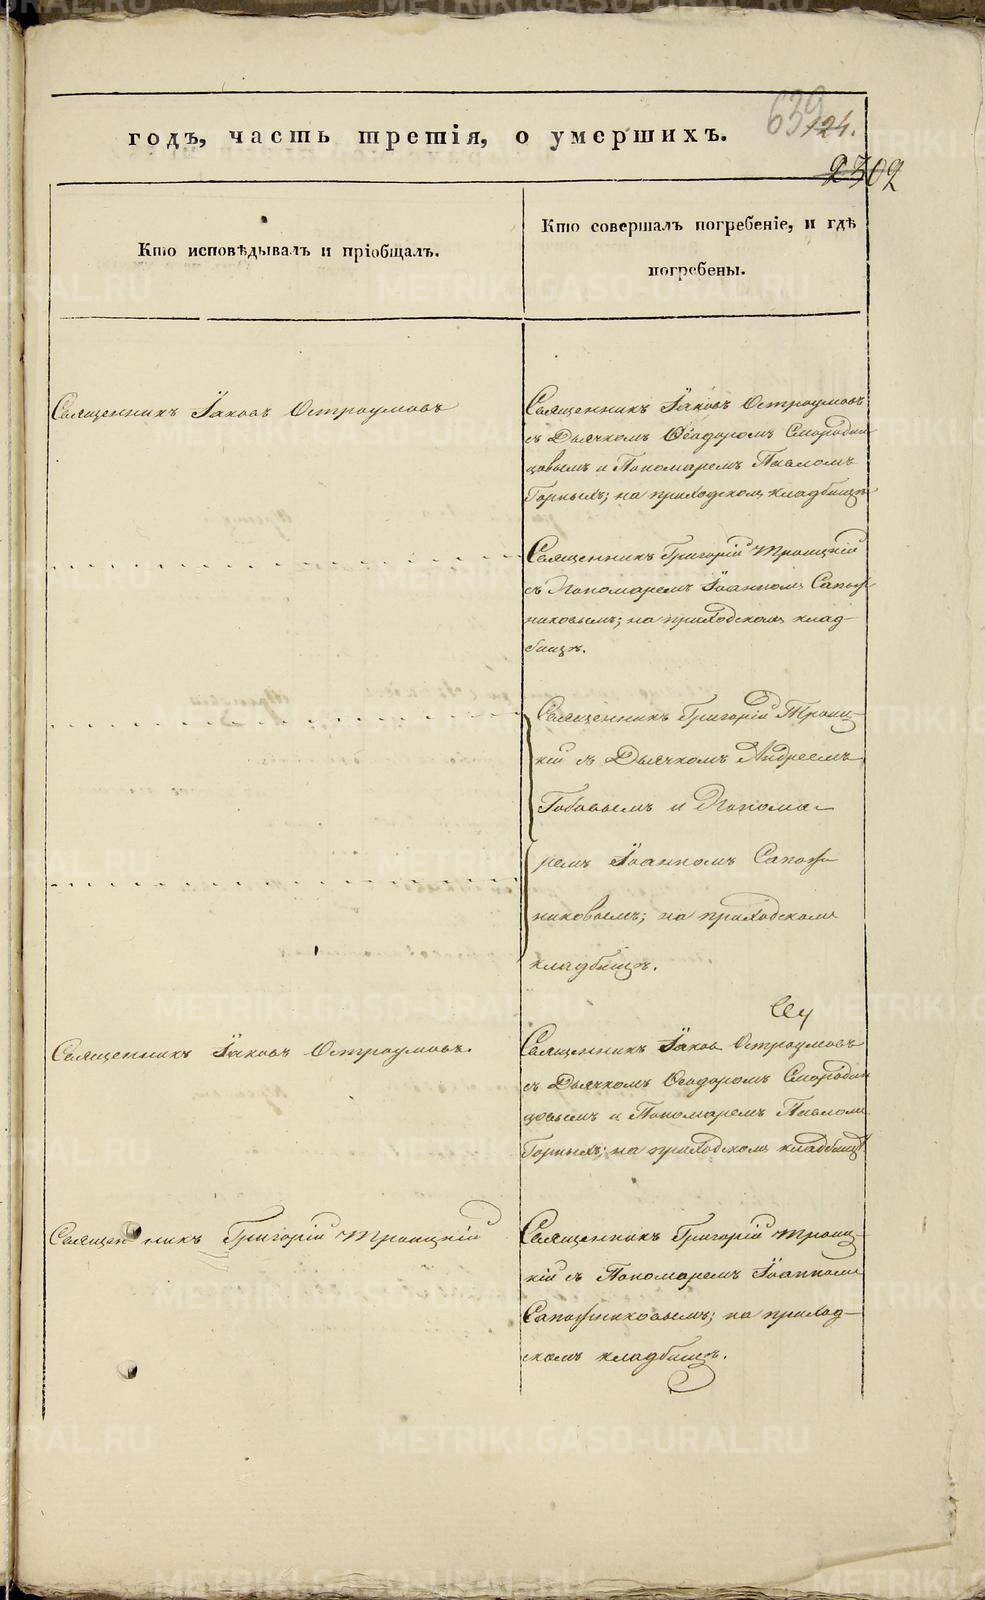 639
124.
2302
годъ, часть третія, о умершихъ.
Кто исповѣдывалъ и пріобщалъ.
Кто совершалъ погребеніе, и гдѣ
погребены.
Священникъ Іаковъ Остроумовъ
Священникъ Іаковъ Остроумовъ
съ Дьячкомъ Ѳеодоромъ Смородин
цовымъ и Пономаремъ Павломъ
Горныхъ; на приходскомъ кладбищѣ
Священникъ Григорій Троицкій
съ Пономаремъ Іоанномъ Сапож
никовымъ; на приходскомъ клад-
бищѣ.
Священникъ Григорій Троиц-
кій съ Дьячкомъ Андреемъ
и Понома-
ремъ Іоанномъ Сапож
никовымъ; на приходскомъ
кладбищѣ.
Священникъ Іаковъ Остроумовъ.
Священникъ Іаковъ Остроумовъ
съ Дьячкомъ Ѳеодоромъ Смородин
цовымъ и Пономаремъ Павломъ
Горныхъ; на приходскомъ кладбищѣ
Священникъ Григорій Троицкій
Священникъ Григорій Троиц-
кій съ Пономаремъ Іоанномъ
Сапожниковымъ; на приход-
скомъ кладбищѣ.
METRIKI.GASO-URAL.RU